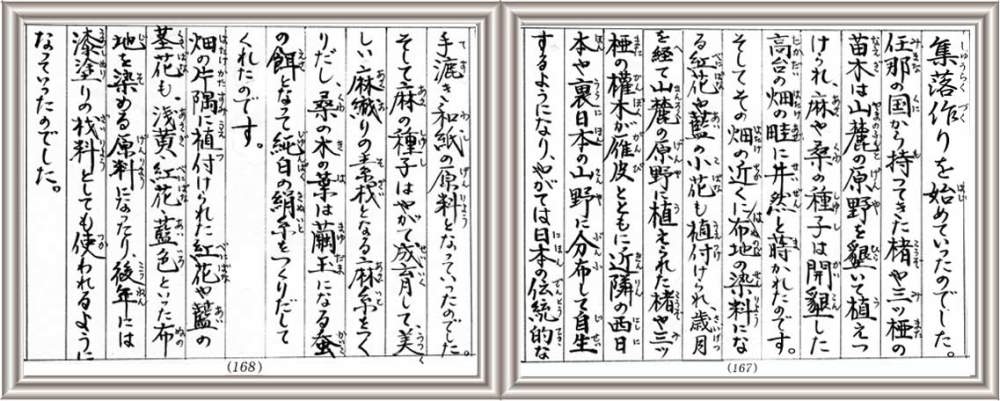 集落作りを始めていったのでした。
任那の国から持ってきた楮や三ッ椏の
苗木は山麓の原野を墾いて植えつ
けられ、麻や桑の種子は開墾した
高台の畑の畦に井然と蒔かれたのです。
そしてその畑の近くに布地の染料にな
る紅花や藍の小花も植付けられ、歳月
を経て山麓の原野に植えられた楮や三ッ
椏の権木が雁皮とともに近隣の西日
本や裏日本の山野に分布して自生
するようになり、やがては日本の伝統的な
(167)
手漉き和紙の原料となっていったのでした。
そして麻の種子はやがて成育して、美
しい麻織りの素材となる麻糸をつく
りだし、桑の木の葉は繭玉になる蚕
の餌となって純白の絹糸をつくりだして
くれたのです。
畑の片隅に植付けられた紅花や藍の
茎花も、浅黄、紅花、藍色といった布
地を染める原料になったり、後年には
漆塗りの材料としても使われるように
なっていったのでした。
(168)